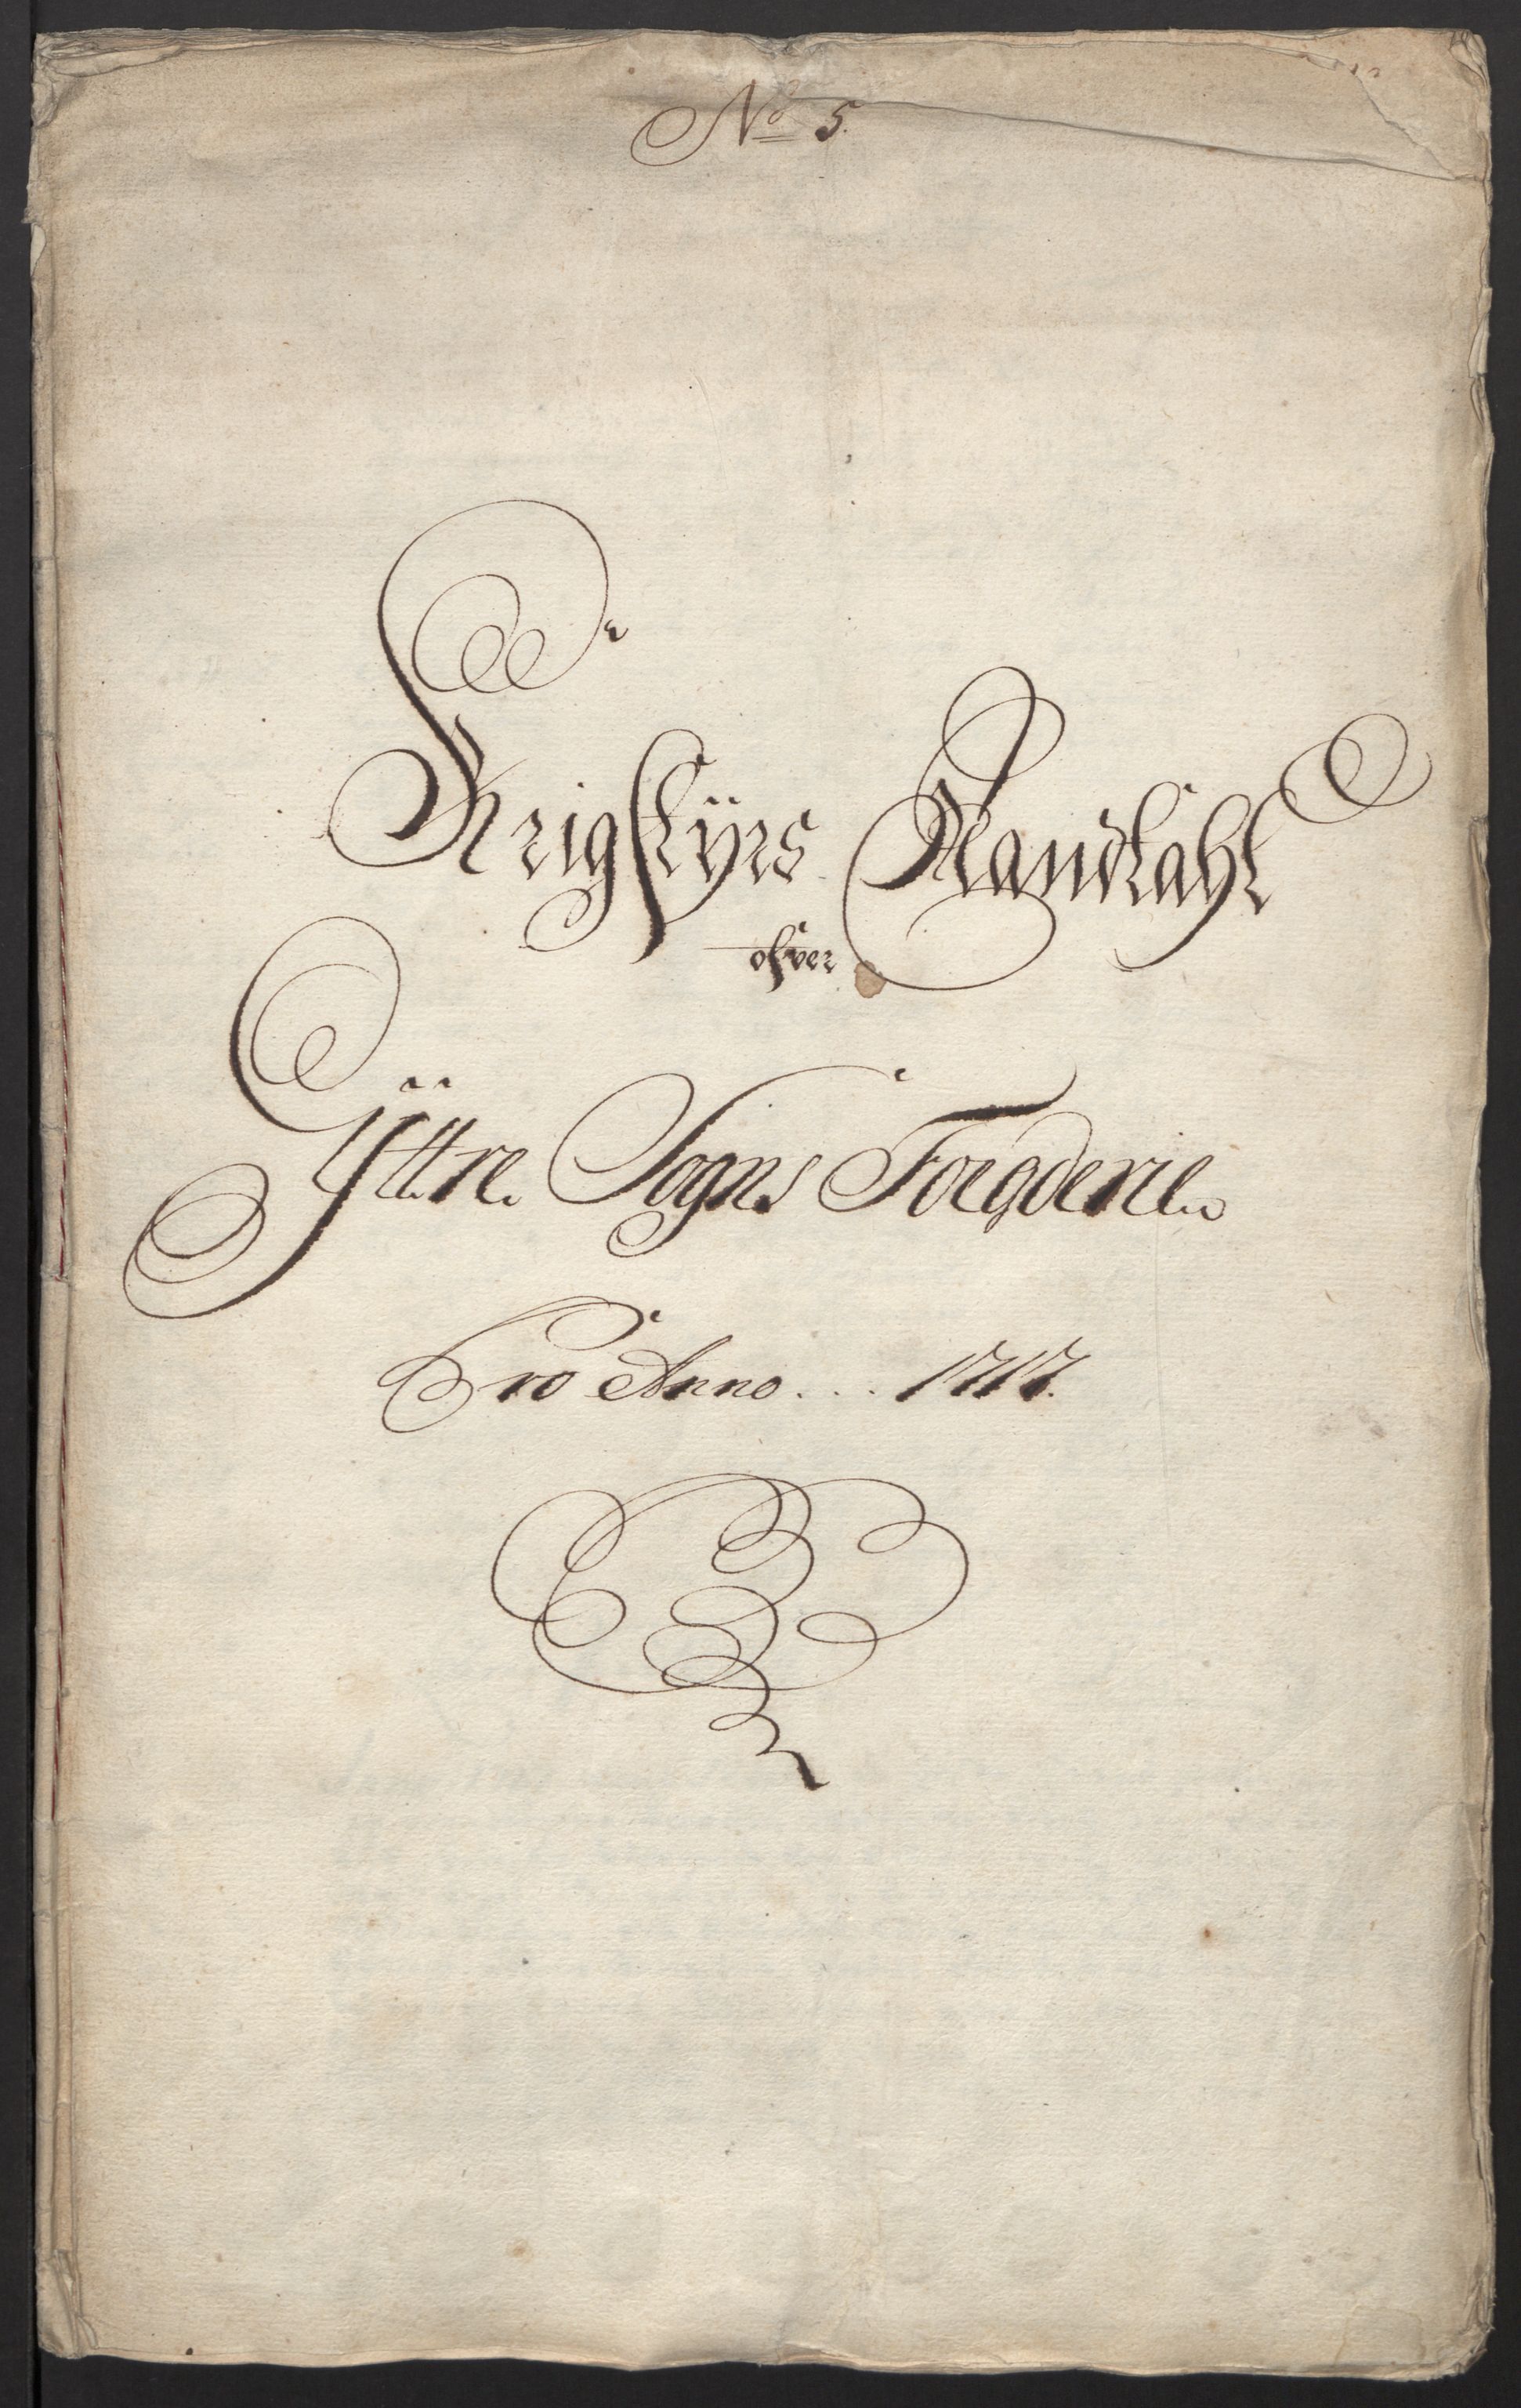 No 5.
Krigstÿrs Mandtahl
ofver
Ÿttre Sogns Foegderie
Pro Anno . . . 1717.